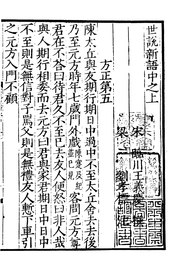 世說新語中之上
宋 臨川王義慶
梁 劉孝標
方正第五
陳太丘與友期行期日中過中不至太丘舍去去後
乃至元方時年七歲門外戲陳寔及紀並已見客問元方尊
君在不答曰待君久不至已去友人便怒曰非人哉
與人期行相委而去元方曰君與家君期日中日中
不至則是無信對子罵父則是無禮友人慚下車引
之元方入門不顧